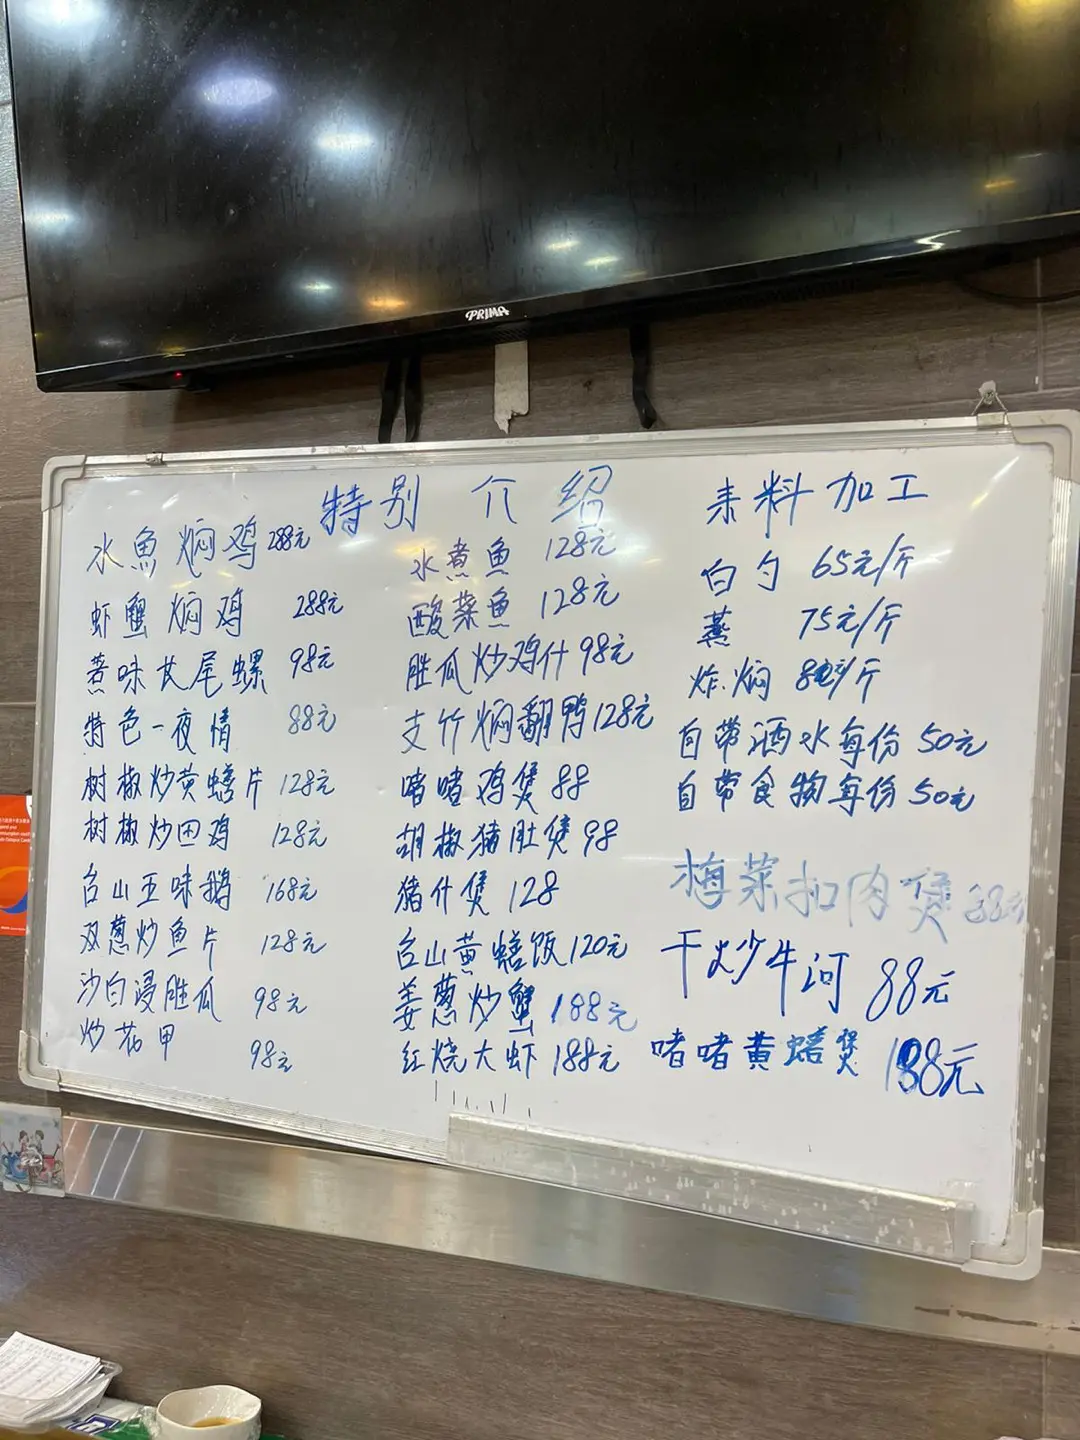 PRIMA
特别介绍
水魚焖鸡 288元
虾蟹焖鸡 288元
惹味芪尾螺 98元
特色一夜情 88元
树椒炒黄蟮片 128元
树椒炒田鸡 128元
台山五味鹅 168元
双葱炒鱼片 128元
沙白浸胜瓜 98元
炒花甲 98元
水煮鱼 128元
酸菜鱼 128元
胜瓜炒鸡什 98元
支竹焖翻鸭 128元
啫啫鸡煲 88
胡椒猪肚煲 98
猪什煲 128
台山黄蟮饭 120元
姜葱炒蟹 188元
红烧大虾 188元
来料加工
白勺 65元/斤
蒸 75元/斤
炸.焖 80元/斤
自带酒水每份 50元
自带食物每份 50元
梅菜扣肉煲
干炒牛河 88元
啫啫黄蟮煲 188元